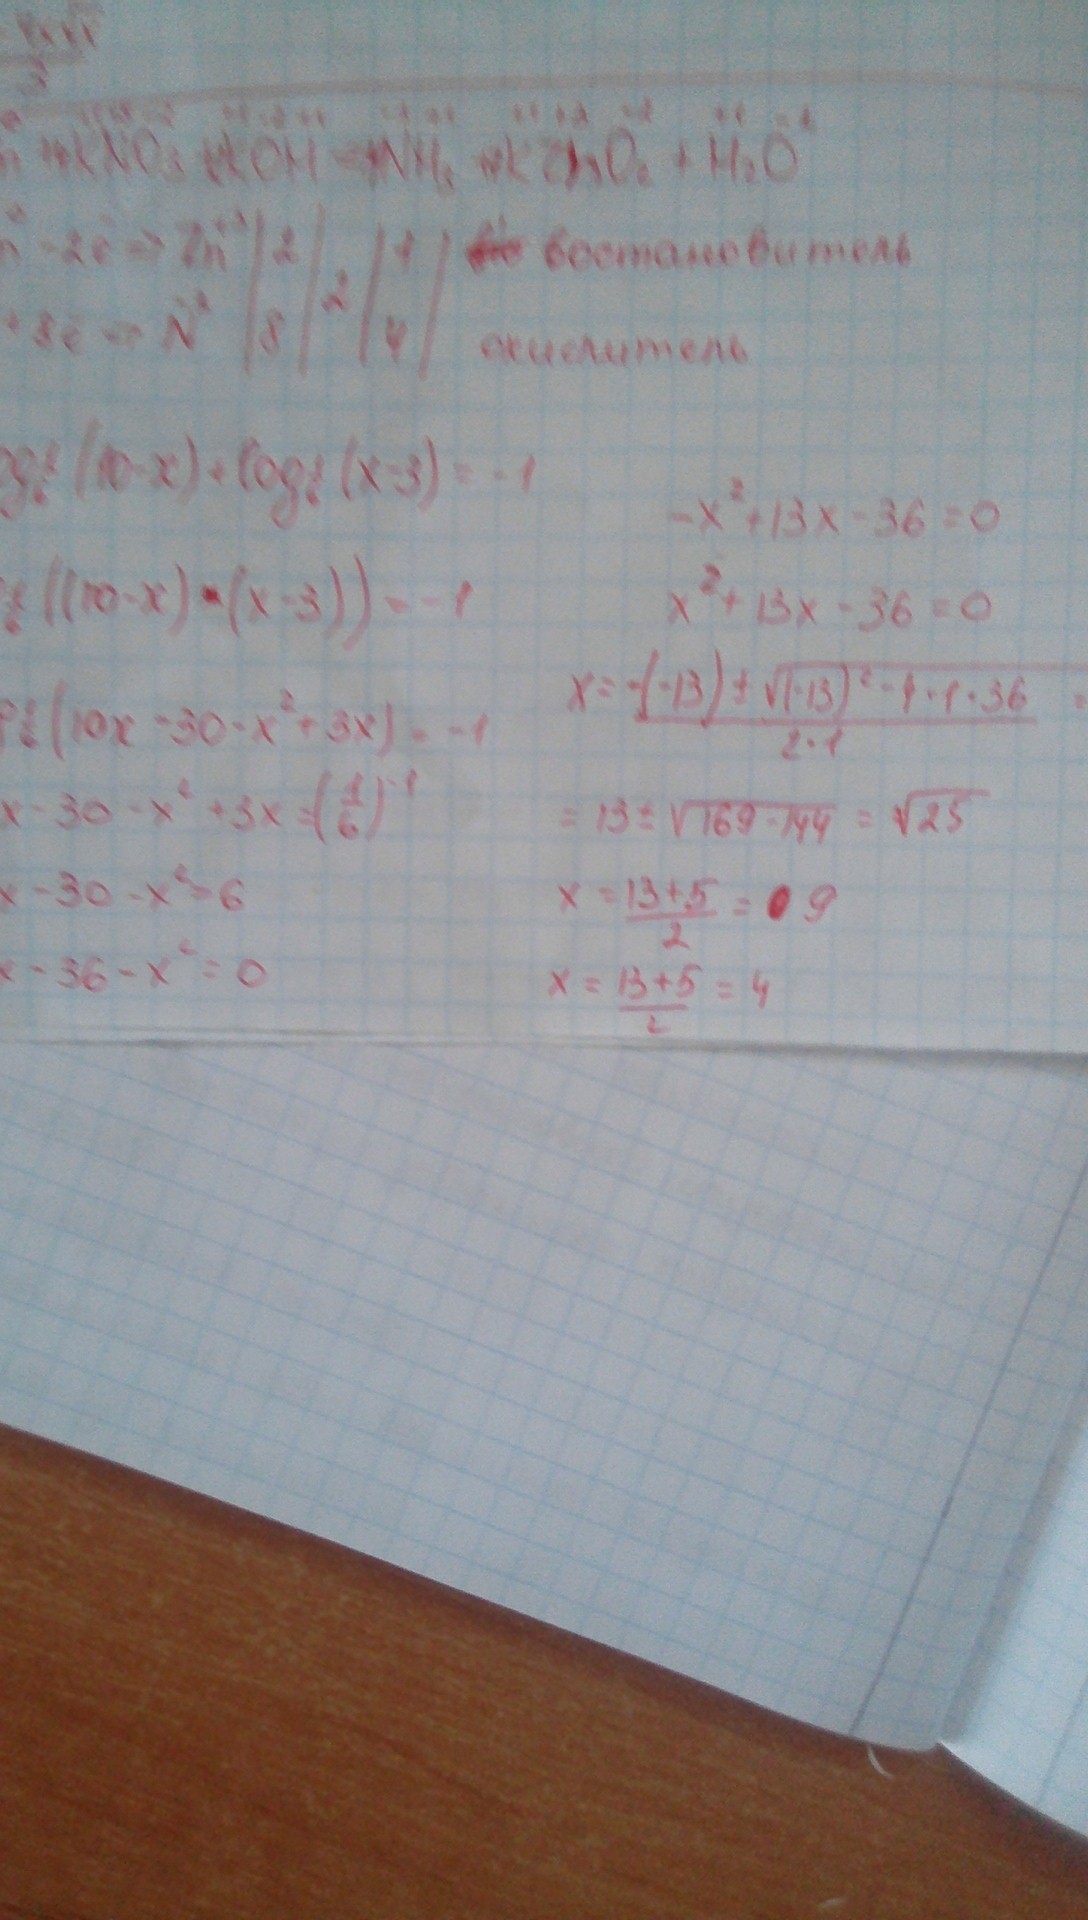 3
KNO₃ + KOH → NH₃ + K ZnO₂ + H₂O
-2ē → Zn | 2 | 2 | 1 | востановитель
+8ē → N | 8 | 4 | окислитель
(10-x) + log (x-3) = -1
((10-x)·(x-3)) = -1
(10x-30-x²+3x) = -1
x-30-x²+3x=(1/6)⁻¹
x-30-x²=6
x-36-x²=0
-x²+13x-36=0
x²+13x-36=0
x = -(-13)±√(-13)²-4·1·36 / 2·1 =
= 13±√169-144 = √25
x = 13+5 / 2 = 9
x = 13+5 / 2 = 4